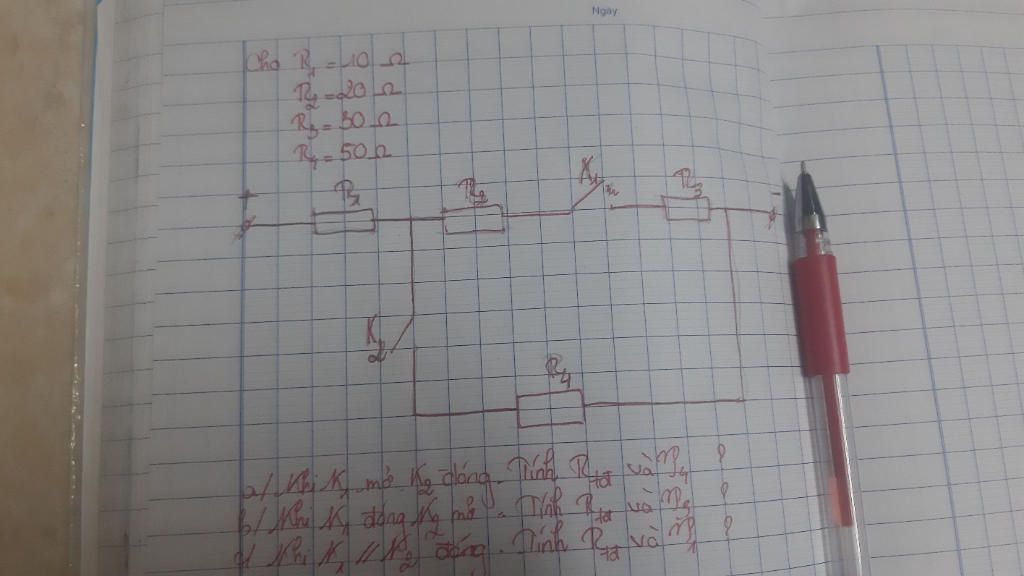 Ngày
Cho R1 = 10 Ω
R2 = 20 Ω
R3 = 30 Ω
R4 = 50 Ω
+ R1 R2 K1 R3 -
K2
R4
a/ Khi K1 mở K2 đóng. Tính Rtđ và ?
b/ Khi K1 đóng K2 mở. Tính Rtđ và ?
c/ Khi K1 // K2 đóng. Tính Rtđ và ?